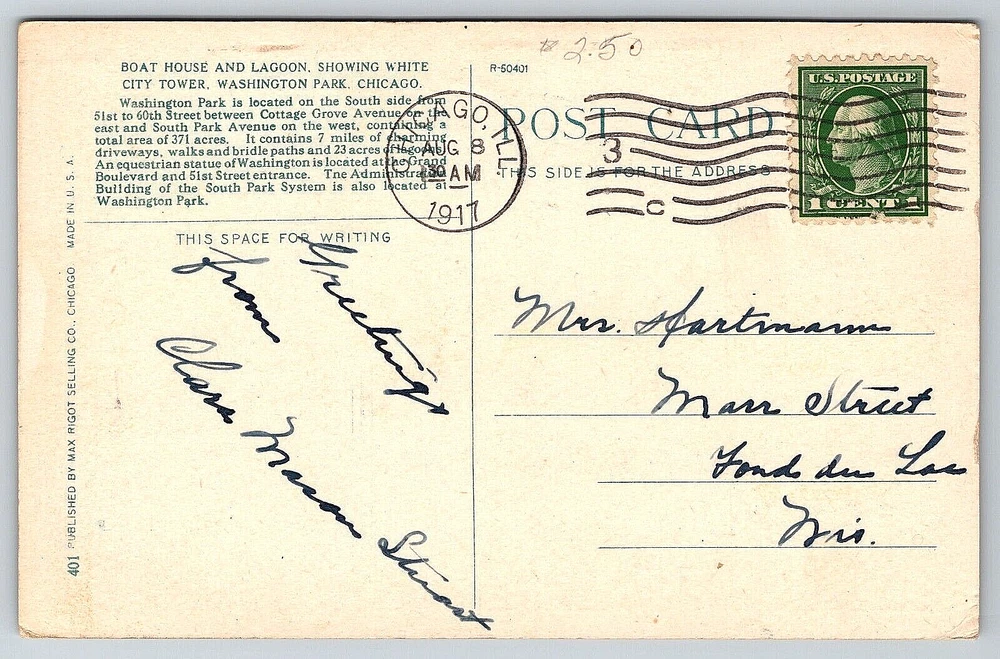 $2.50
BOAT HOUSE AND LAGOON, SHOWING WHITE
CITY TOWER, WASHINGTON PARK, CHICAGO.
Washington Park is located on the South side from
51st to 60th Street between Cottage Grove Avenue on the
east and South Park Avenue on the west, containing a
total area of 371 acres. It contains 7 miles of charming
driveways, walks and bridle paths and 23 acres of lagoons.
An equestrian statue of Washington is located at the Grand
Boulevard and 51st Street entrance. Tne Administration
Building of the South Park System is also located at
Washington Park.
THIS SPACE FOR WRITING
Greetings
from
Clara Mason Stuart
401 PUBLISHED BY MAX RIGOT SELLING CO., CHICAGO MADE IN U. S. A.
R-50401
CHICAGO, ILL.
AUG 8
30 AM
1917
3
C
POST CARD
THIS SIDE IS FOR THE ADDRESS
U.S. POSTAGE
1 CENT 1
Mrs. Hartmann
Marr Street
Fond du Lac
Wis.